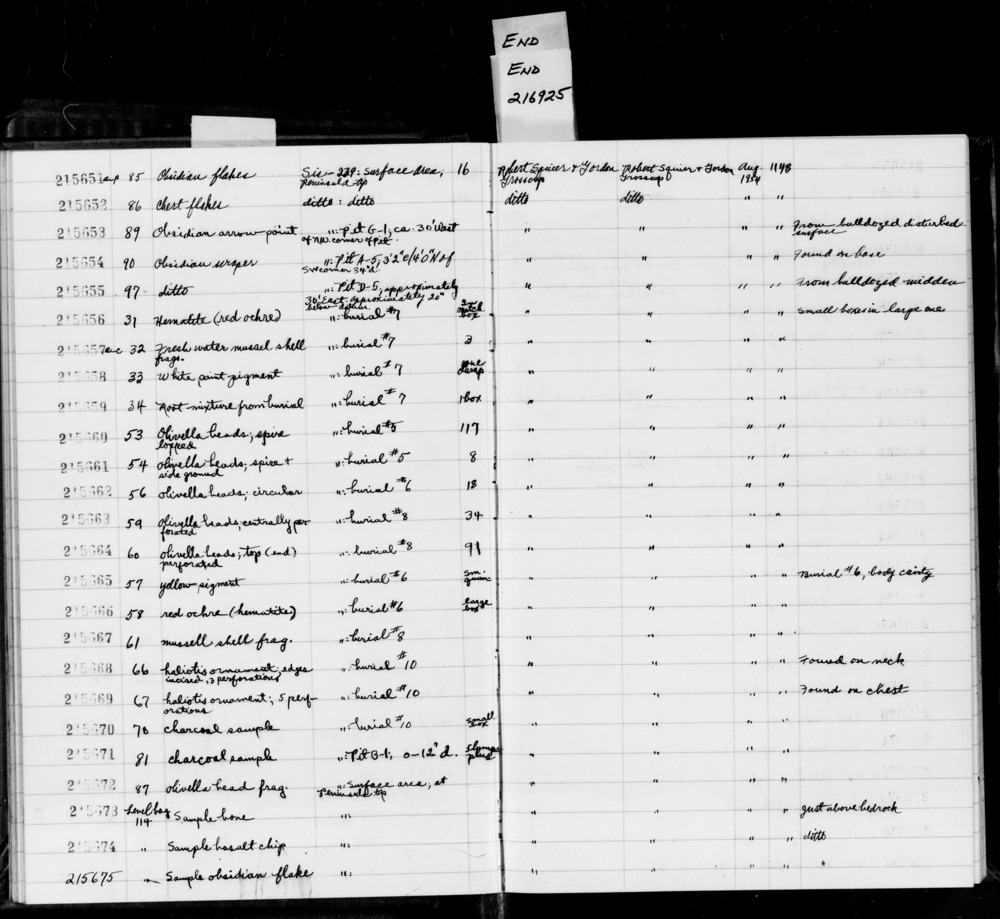 END
END
216925
215651 a-p 85 Obsidian flakes Sis-239: Surface Area, 16 Robert Squier & Gordon Robert Squier & Gordon Aug. 1148
Peninsula tip Grosscup Grosscup
215652 86 Chert flakes ditto : ditto ditto ditto " "
215653 89 Obsidian arrow point ": Pit G-1, ca. 30' West " " " " From bulldozed disturbed
of NW corner of Pit. surface
215654 90 Obsidian scraper ": Pit A-5, 3'2"E/4'0"N of " " " " Found on base
SW corner 34"d
215655 97 ditto ": Pit D-5, approximately " " " " From bulldozed midden
30' East approximately 20"
below datum
215656 31 Hematite (red ochre) ": burial #7 2 match box " " " " Small boxes in large one
215657 a-c 32 Fresh water mussel shell ": burial #7 3 " " " "
frags.
215658 33 White paint pigment ": burial #7 " " " "
215659 34 Root mixture from burial ": burial #7 1 box " " " "
215660 53 Olivella beads; spire ": burial #5 117 " " " "
lopped
215661 54 olivella beads; spire + ": burial #5 8 " " " "
side ground
215662 56 olivella beads; circular ": burial #6 18 " " " "
215663 59 Olivella beads, centrally per- ": burial #8 34 " " " "
forated
215664 60 olivella beads; top (end) ": burial #8 91 " " " "
perforated
215665 57 yellow pigment ": burial #6 sm. quan. " " " " Burial #6, body cavity
215666 58 red ochre (hematite) ": burial #6 large box " " " "
215667 61 mussell shell frag. ": burial #8 " " " "
215668 66 haliotis ornament; edges ": burial #10 " " " " Found on neck
incised, 3 perforations
215669 67 haliotis ornament; 5 perf- ": burial #10 " " " " Found on chest
orations
215670 70 charcoal sample ": burial #10 small box " " " "
215671 81 charcoal sample ": Pit B-1, 0-12" d. 5 lumps plus " " " "
215672 87 olivella bead frag. ": Surface area, at " " " "
Peninsula tip
215673 Level bag Sample bone ": " " " " Just above bedrock
114
215674 " Sample basalt chip ": " " " " ditto
215675 " Sample obsidian flake ": " " " " "